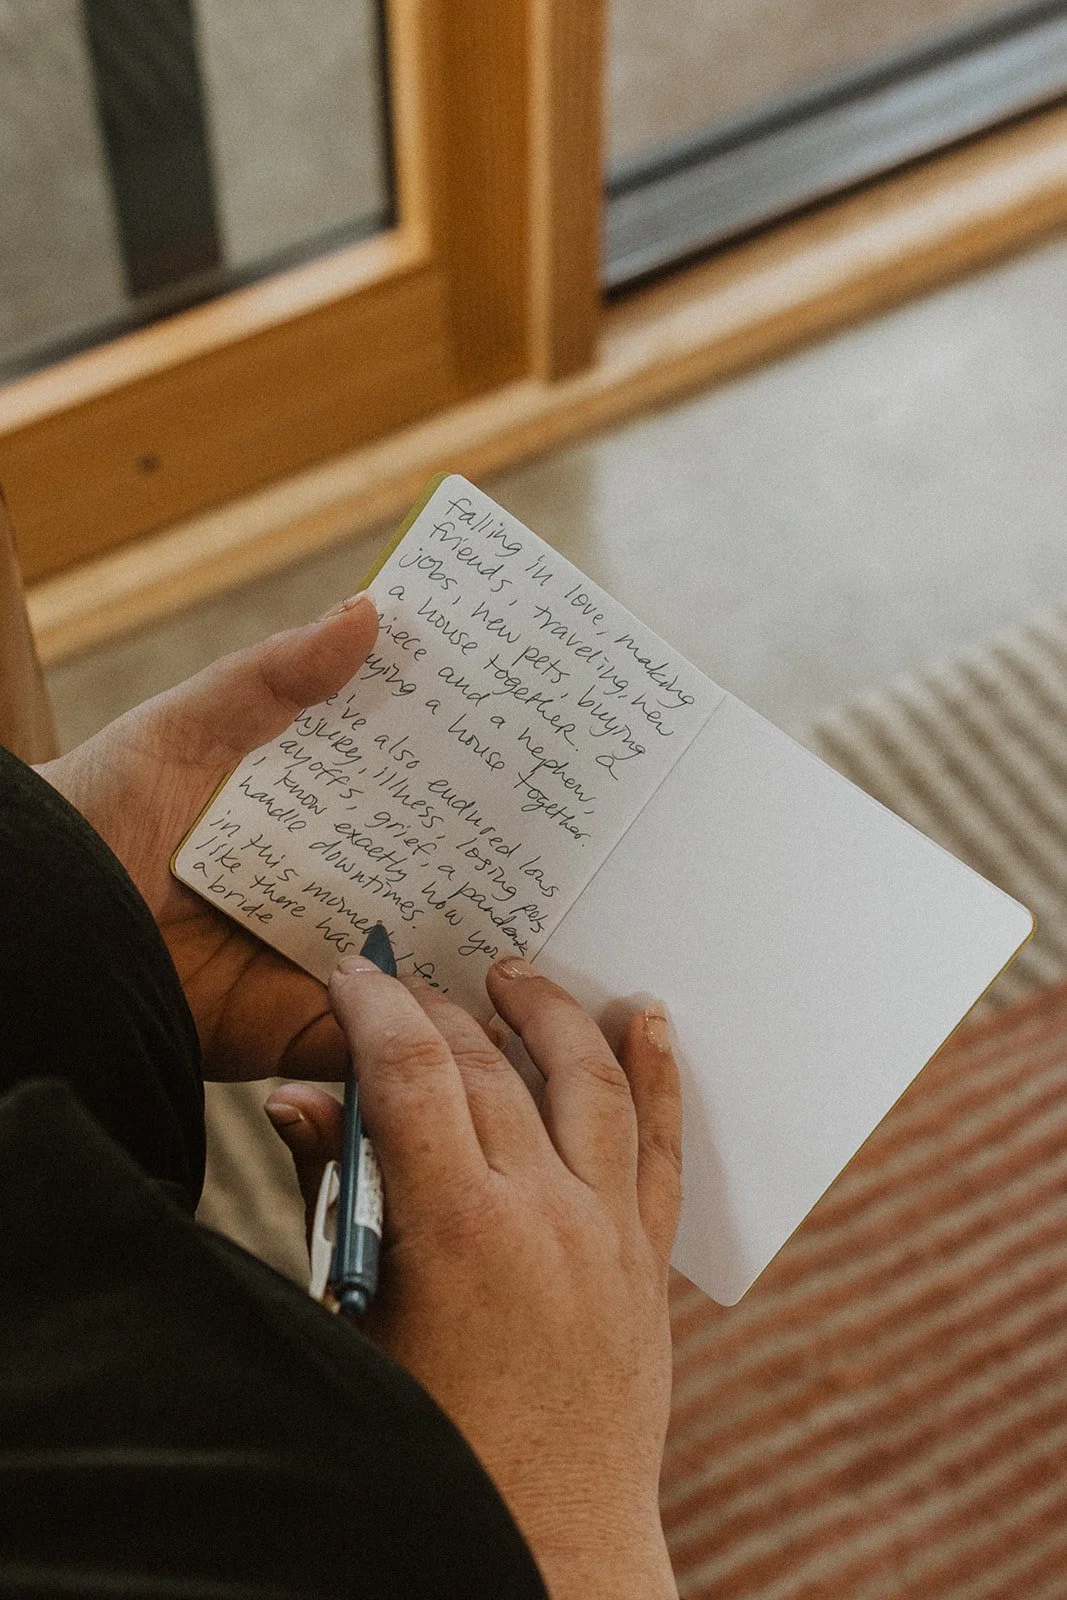 falling in love, making
friends, traveling, new
jobs, new pets, buying
a house together. a
niece and a nephew,
buying a house together.
we've also endured loss
injury, illness, losing pets
layoffs, grief, a pandemic
I know exactly how you
handle downtimes.
in this moment I feel
like there has
a bride